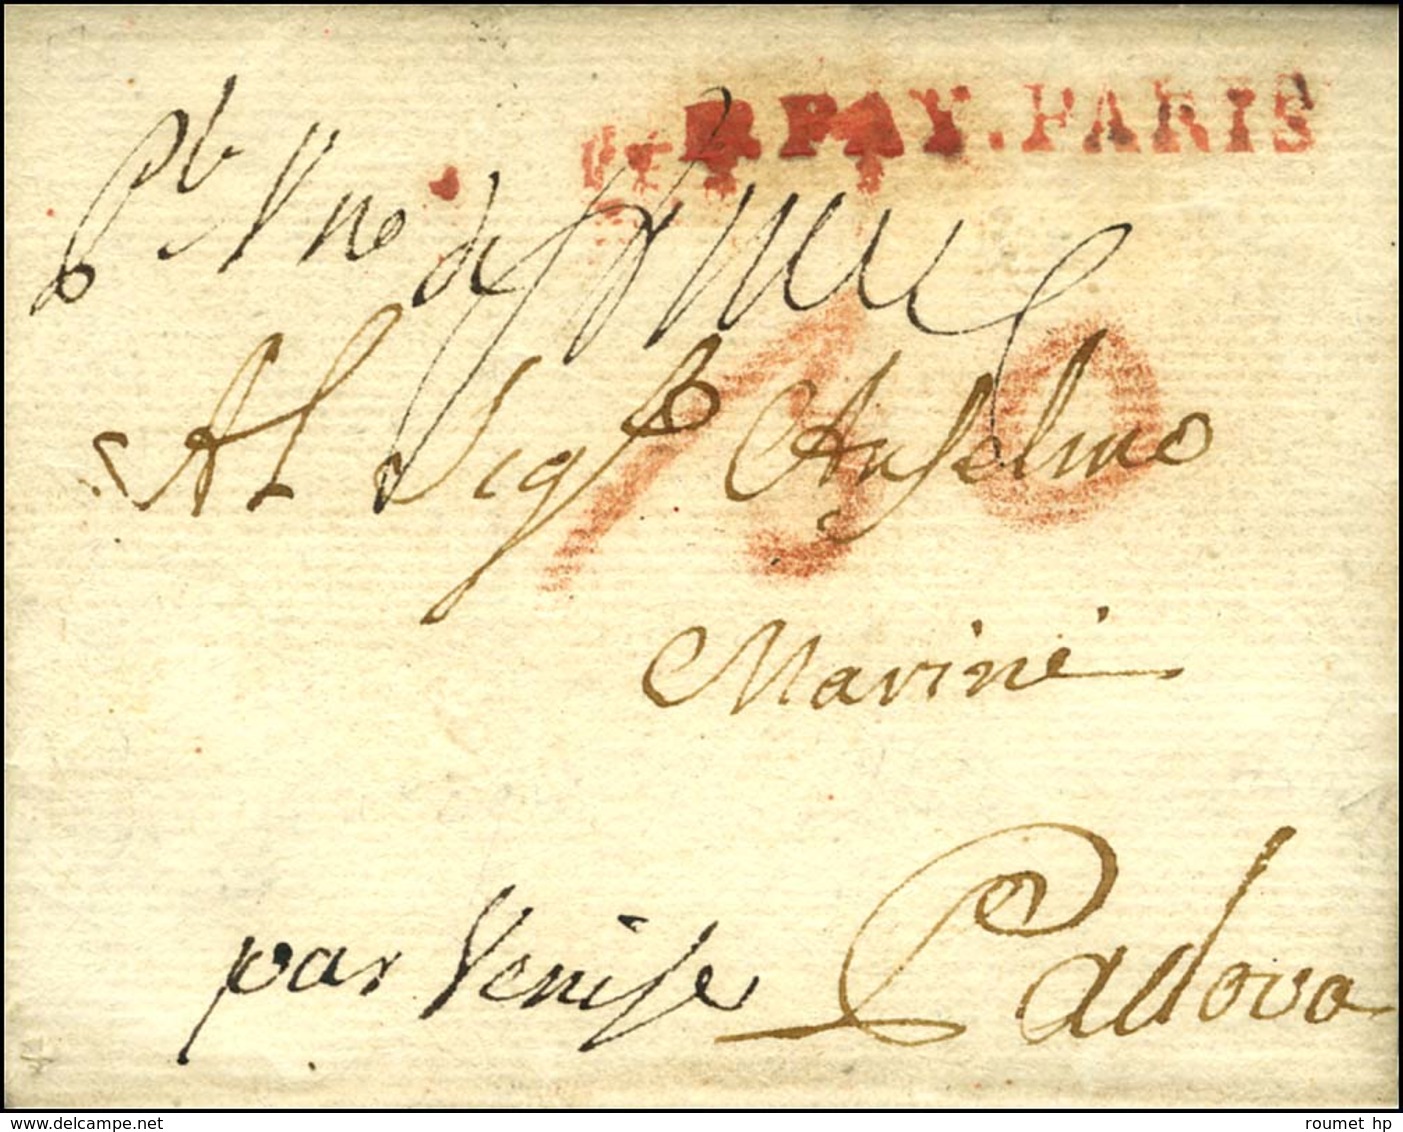 P.PAY.PARIS
Al Sig.r Anselmo
Marini
par Venise Padova
www.delcampe.net
roumet hp